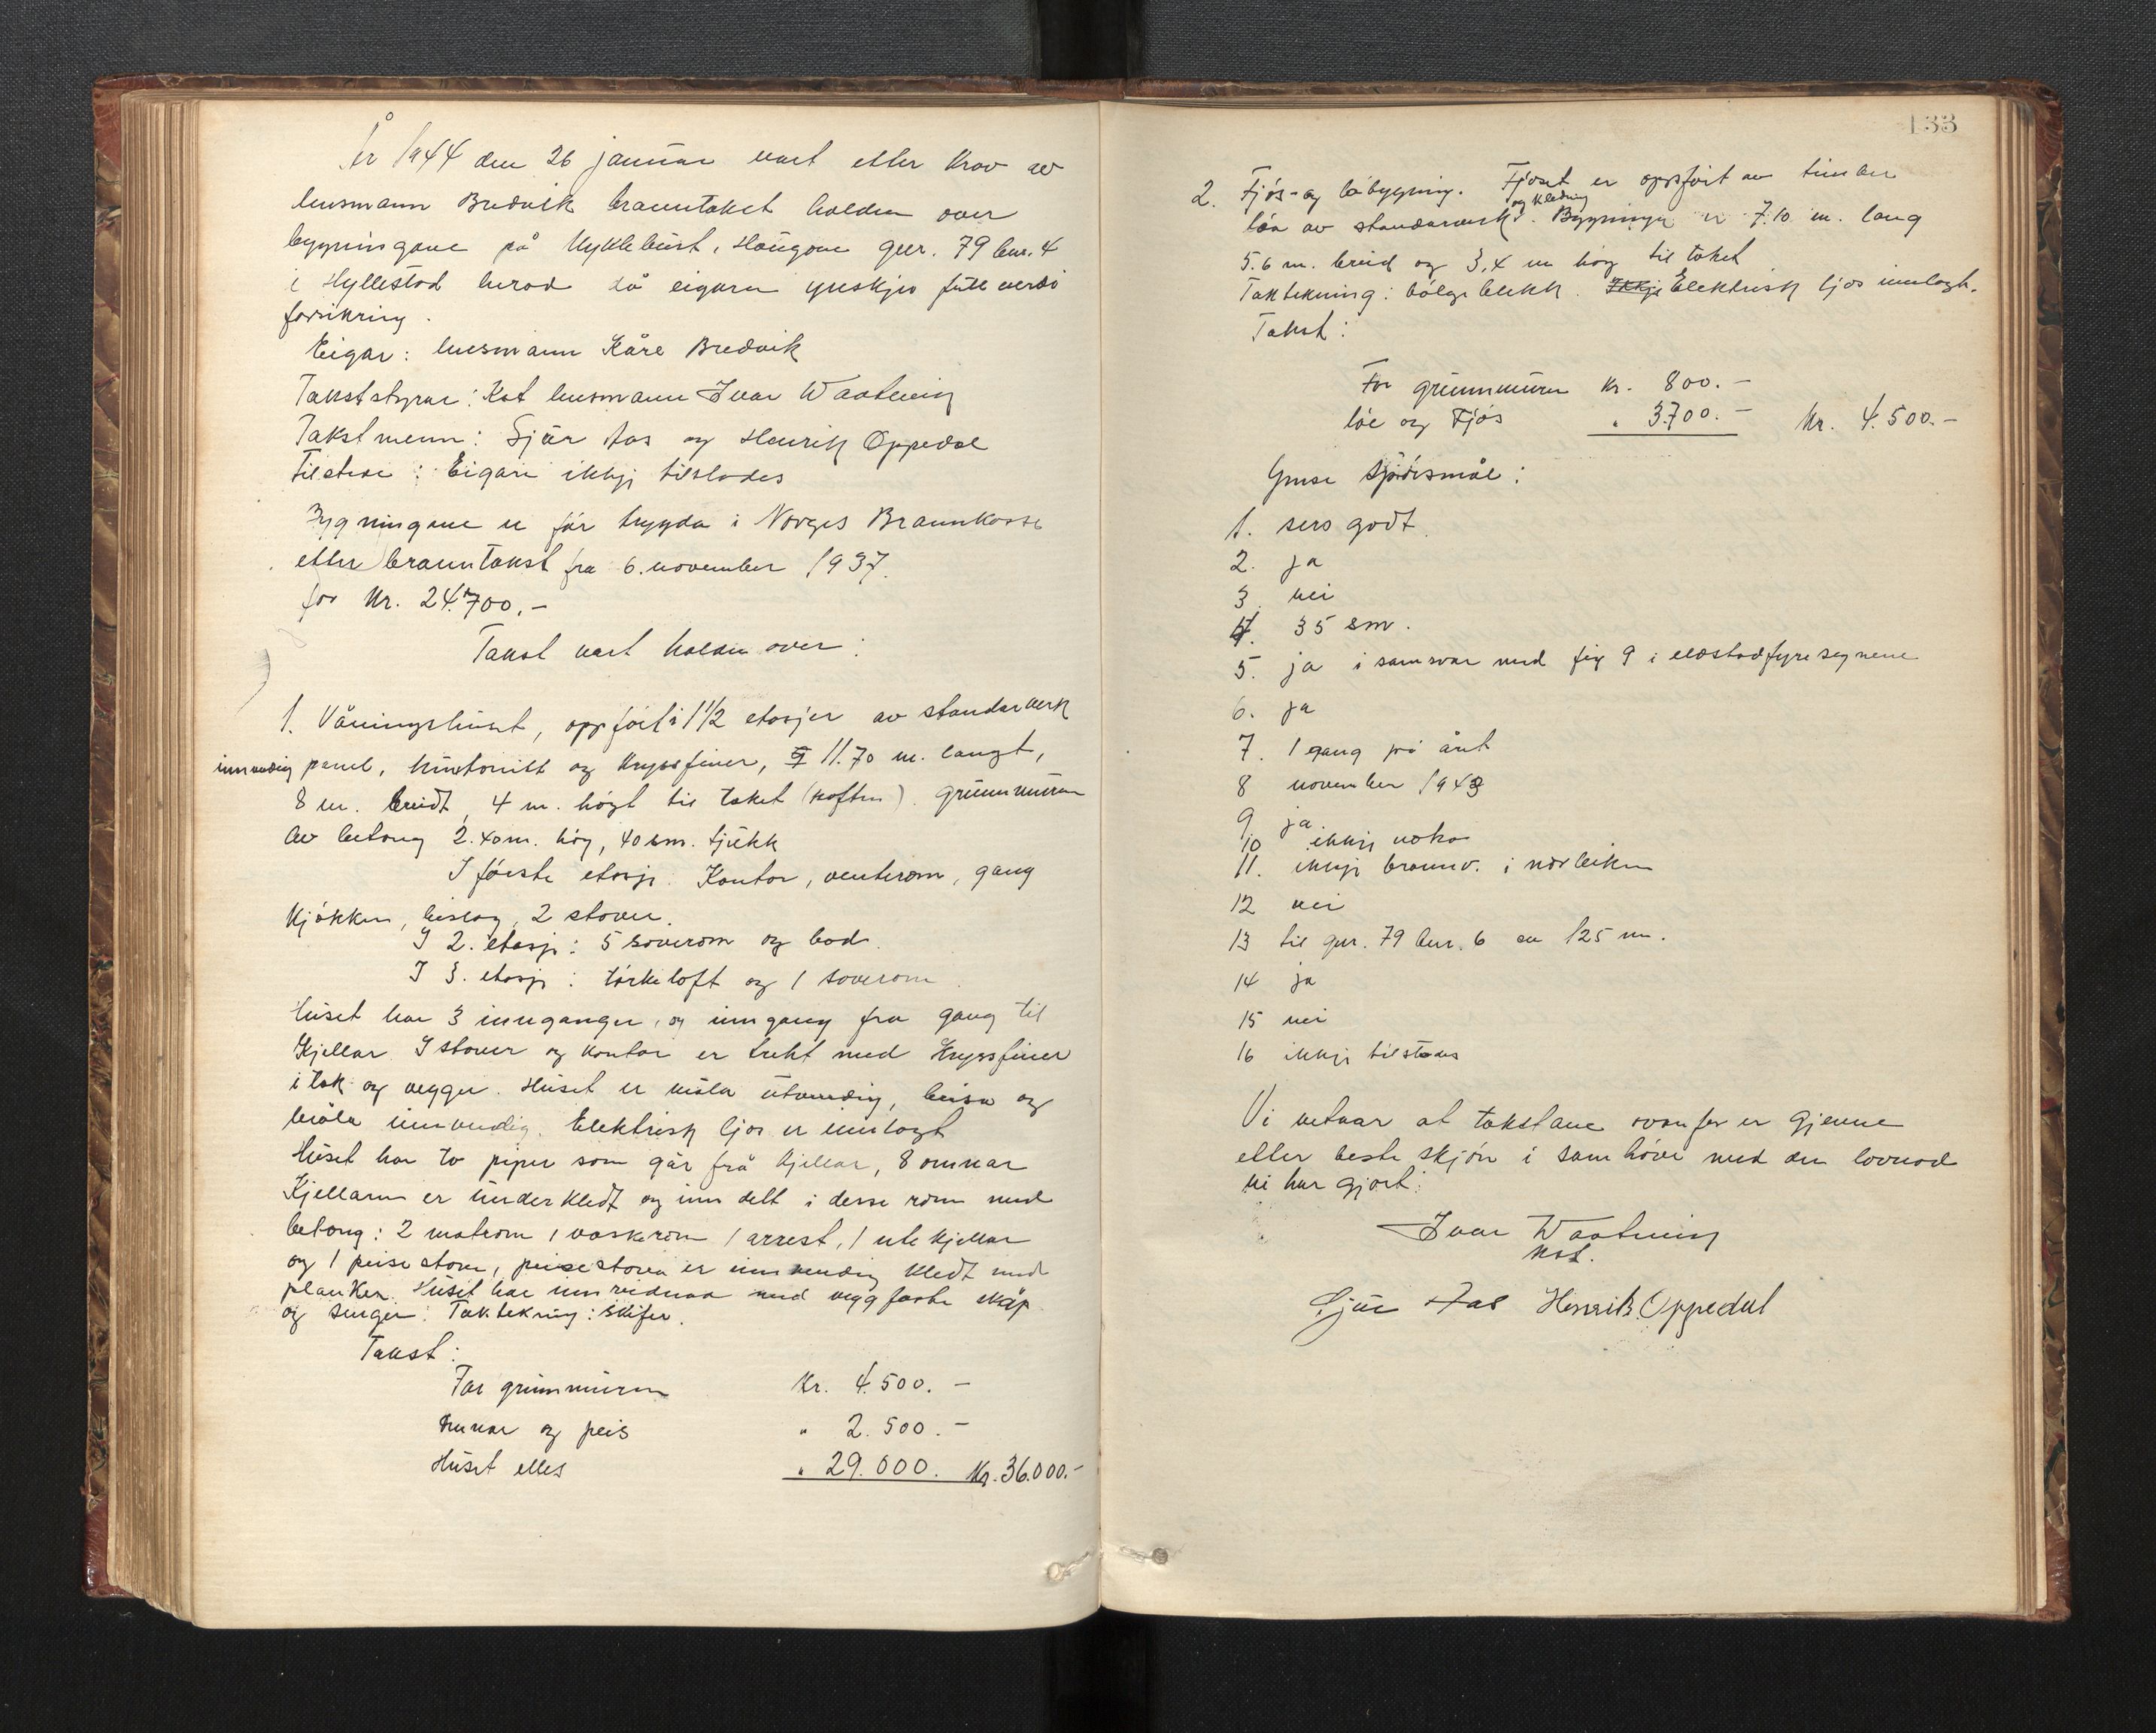 År 1944 den 26 januar vart etter krav av
lensmann Bredvik branntakst halden over
bygningane på Myklebust, Haugane gnr. 79 bnr. 4
i Hyllestad herad då eigaren ynskjer full verdi
forsikring.
Eigar: lensmann Kåre Bredvik
Takststyrar: Kst lensmann Ivar
Takstmenn: Sjur Aas og Henrik Oppedal
Tilstede: Eigaren ikkje tilstades
Bygningane er før trygda i Norges Brannkasse
etter branntakst fra 6. november 1937.
for kr. 24.700.-
Takst vart halden over:
1. Våningshuset, oppført i 1 1/2 etasjer av standarverk
innvendig panel, huntonitt og kryssfiner, 11.70 m. langt,
8 m. breidt, 4 m. høgt til taket (raften). Grunnmuren
av betong 2.40 m. høg, 40 sm. tjukk
I første etasje: Kontor, venterom, gang
kjøkken, bislag, 2 stover.
I 2. etasje: 5 soverom og bad.
I 3. etasje: tørkeloft og 1 soverom.
Huset har 3 innganger, og inngang fra gang til
kjellar. I stover og kontor er trekt med kryssfiner
i tak og vegger. Huset er måla utvendig, beisa og
måla innvendig. Elektrisk ljos er innlagt
Huset har to piper som går frå kjellar, 8 omnar
Kjellaren er underkledt og inndelt i desse rom med
betong: 2 matrom 1 vaskerom 1 arrest, 1 utekjellar
og 1 peisestove, peisestova er innvendig kledt med
planker. Huset har innreidnad med veggfaste skåp
og senger. Taktekning: skifer.
Takst:
For grunnmuren kr. 4.500.-
Omnar og peis " 2.500.-
Huset elles " 29.000. Kr. 36.000.-
133
2. Fjøs- og løbygning. Fjøset er oppført av timber
og kledning
løa av standarverk. Bygningen er 7.10 m. lang
5.6 m. breid og 3,4 m høg til taket
Taktekning: bølgeblekk. Ikkje Elektrisk ljos innlagt.
Takst:
For grunnmuren kr. 800.-
løe og Fjøs " 3.700.- Kr. 4.500.-
Ymse spørsmål:
1. sers godt
2. ja
3. nei
4. 35 sm.
5. ja i samsvar med fig 9 i eldstadfyresegnene
6. ja
7. 1 gang på året
8 november 1943
9 ja
10 ikkje noko
11. ikkje brannv. i nærleiken
12 nei
13 til gnr. 79 bnr. 6 ca 125 m.
14 ja
15 nei
16 ikkje tilstades
Vi vitnar at takstane ovanfor er gjevne
etter beste skjøn i samhøve med den lovnad
vi har gjort.
Ivar
kst.
Sjur Aas Henrik Oppedal